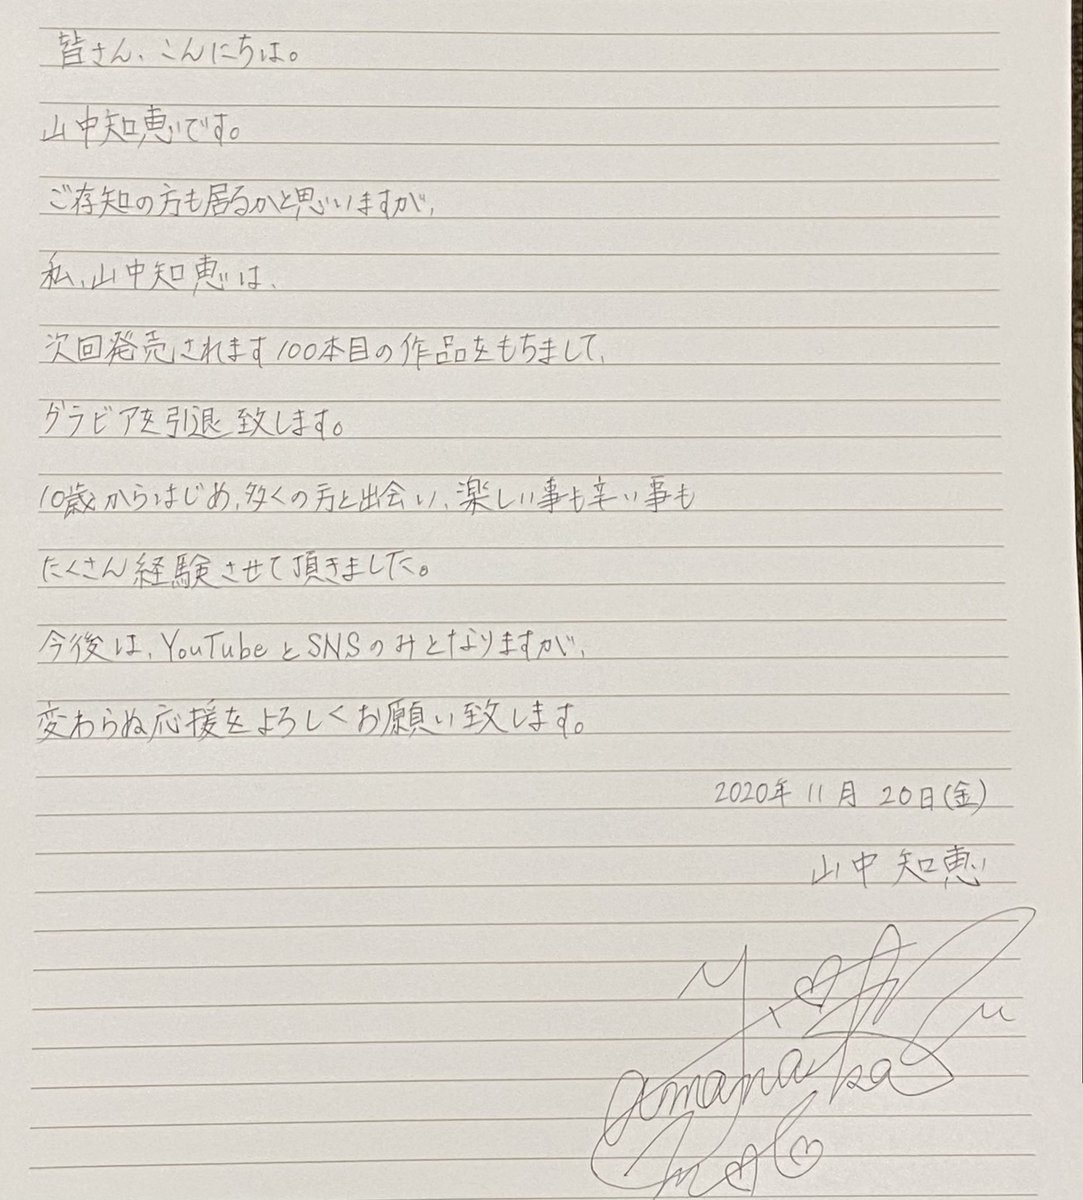 皆さん、こんにちは。
山中知恵です。
ご存知の方も居るかと思いますが、
私、山中知恵は、
次回発売されます100本目の作品をもちまして、
グラビアを引退致します。
10歳からはじめ、多くの方と出会い、楽しい事も辛い事も
たくさん経験させて頂きました。
今後は、YouTubeとSNSのみとなりますが、
変わらぬ応援をよろしくお願い致します。
2020年11月20日(金)
山中知恵